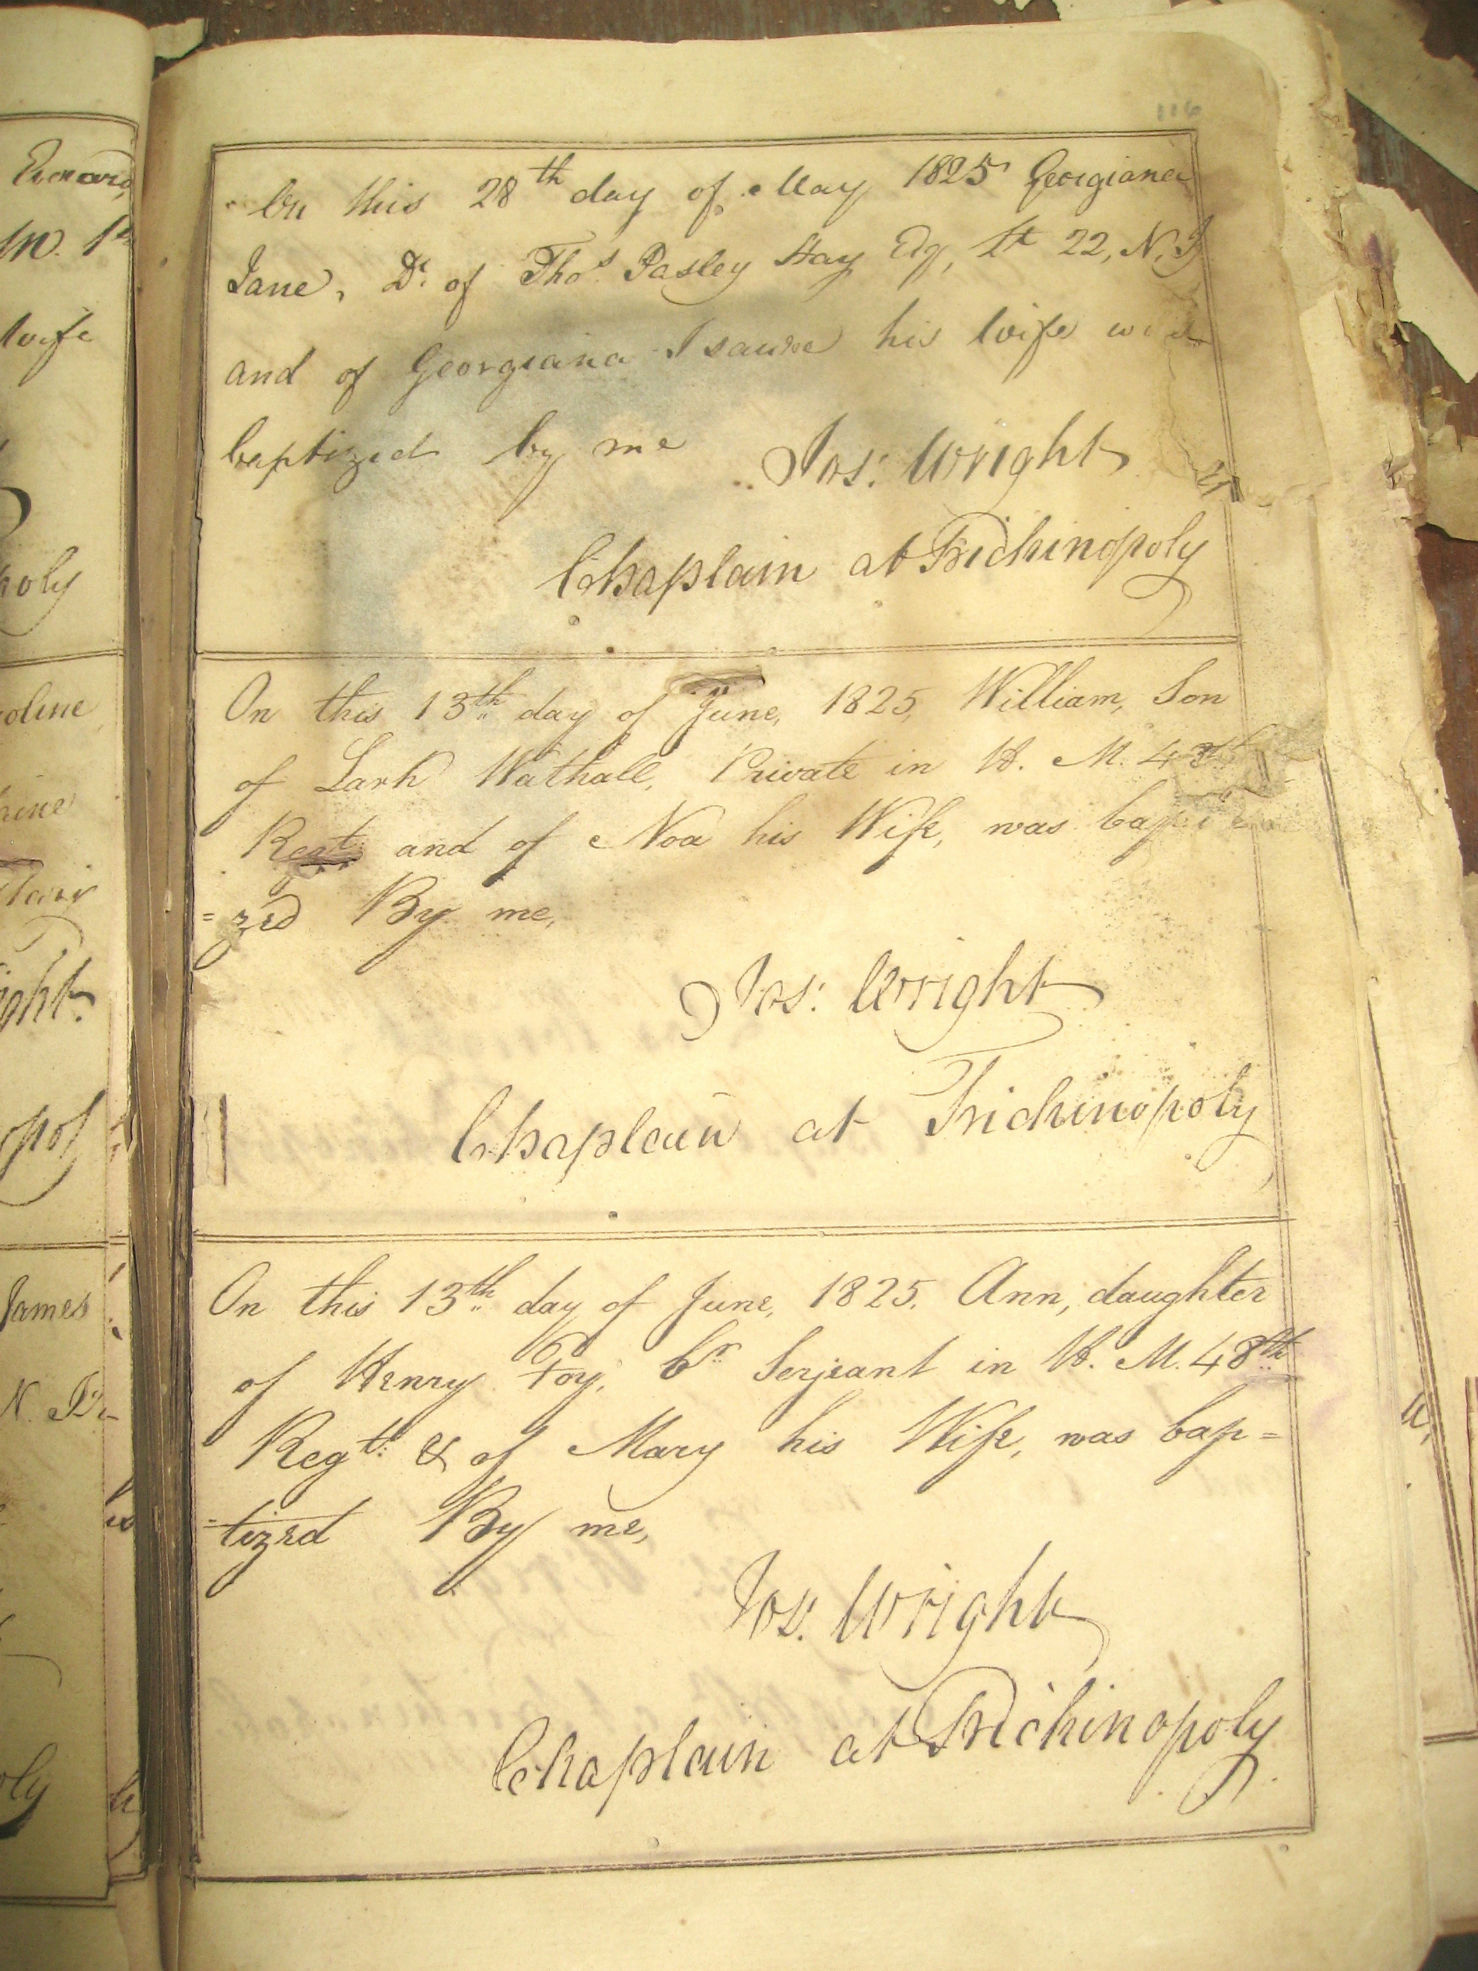 116
On this 28th day of May 1825 Georgiana
Jane, Dr. of Thos. Pasley Hay Esq, Lt 22, N. I
and of Georgiana Isaure his wife was
baptized by me Jos: Wright
Chaplain at Trichinopoly
On this 13th day of June, 1825, William, Son
of Lark Wathall, Private in H. M. 48th
Regt and of Noa his Wife, was bapti
=zed By me,
Jos: Wright
Chaplain at Trichinopoly
On this 13th day of June, 1825. Ann, daughter
of Henry Foy, Cr Serjeant in H. M. 48th
Regt: & of Mary his Wife, was bap=
=tized By me,
Jos: Wright
Chaplain at Trichinopoly